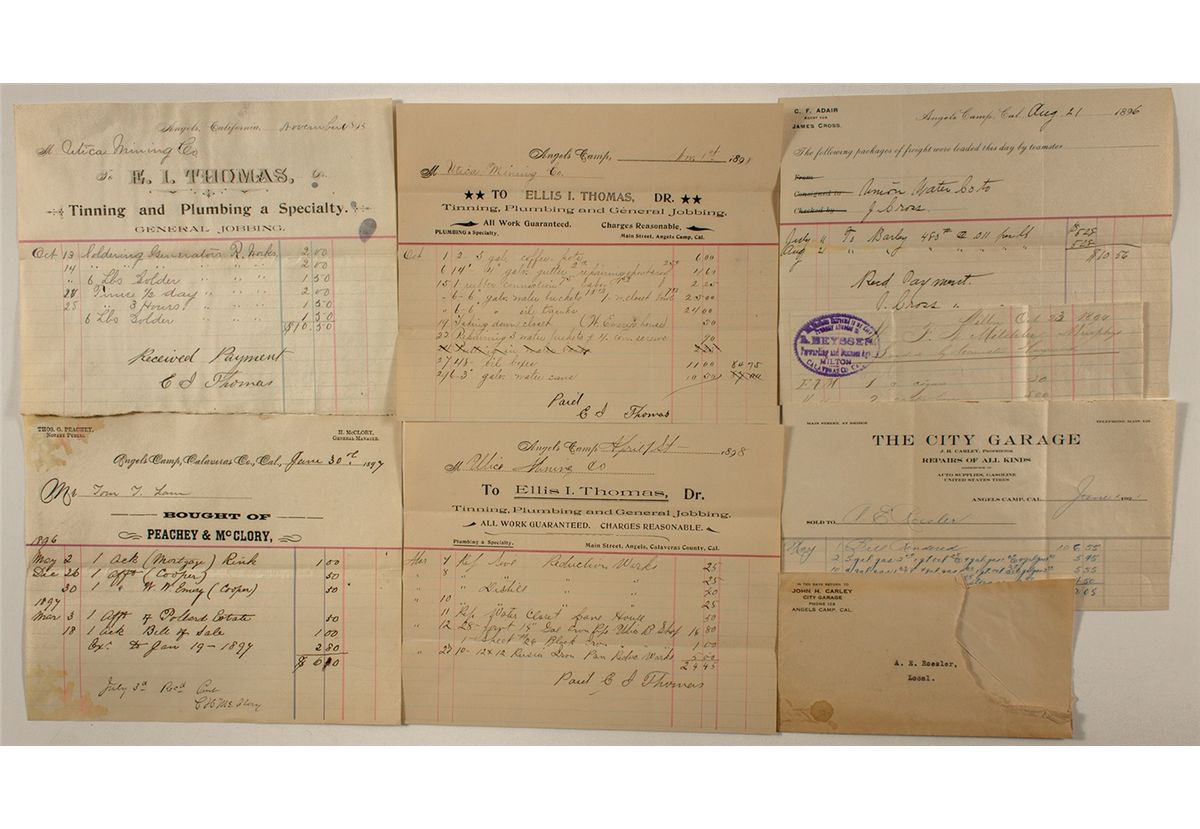 Angels, California, November 1
M Utica Mining Co
To E. I. THOMAS, Dr.
Tinning and Plumbing a Specialty.
GENERAL JOBBING.
Oct 13 Soldering Generators R. Works 2 00
14 " " " 2 00
" 6 Lbs Solder " " 1 50
24 Time 1/2 day " " 2 00
25 " 3 Hours " " 1 50
6 Lbs Solder " " 1 50
$10.50
Received Payment
E I Thomas
Angels Camp, Nov 1st 1898
M Utica Mining Co.
TO ELLIS I. THOMAS, DR.
Tinning, Plumbing and General Jobbing.
All Work Guaranteed. Charges Reasonable,
PLUMBING a Specialty. Main Street, Angels Camp, Cal.
Oct 1 2-3 gal. coffee pots 6 00
6 14' gutter repairing
15 1 rubber connection 2.25
6-6 galv. water buckets 1 closet 25 00
6 oil tanks 24 00
19 Taking down closet house) 50
22 Repairing 3 water buckets 90
27 48 oil boxes 11 00 80.75
29 6-3 galv. water cans 10 50
Paid
E I Thomas
C. F. ADAIR
AGENT FOR
JAMES CROSS.
Angels Camp, Cal. Aug 21 1896
The following packages of freight were loaded this day by teamster
From
Consigned to Union Water Co to
Checked by J. Cross
July 11 To Barley 483# @ .011 per lb $5.28
Aug 2 " " " " 5.28
$10.56
Recd Payment.
J. Cross
Milton Oct 23
Murphys
A. BEYSSER
Forwarding and Commission Agt.
MILTON
CALAVERAS CO. CAL.
THOS. G. PEACHEY,
NOTARY PUBLIC.
H. McCLORY,
GENERAL MANAGER.
Angels Camp, Calaveras Co., Cal., June 30th, 1897
Mr Tom T. Lane
BOUGHT OF
PEACHEY & McCLORY,
1896
May 2 1 Ack (Mortgage) Rink 1 00
Dec 26 1 afft (Cooper) 50
30 1 " W. W. Emery (Cooper) 50
1897
Mar 3 1 Afft of Pollard Estate 50
18 1 Ack Bill of Sale 1 00
Ex. to Jan 19-1897 2 80
July 3d Recd Pmt
McClory
Angels Camp April 1st 1898
M Utica Mining Co
To Ellis I. Thomas, Dr.
Tinning, Plumbing and General Jobbing.
ALL WORK GUARANTEED. CHARGES REASONABLE.
Plumbing a Specialty. Main Street, Angels, Calaveras County, Cal.
Mar 7 Rep Stove Reduction Works 25
" 8 " " " 25
" " Distill " " 70
" 10 " " " 25
" 11 Rep. Water Closet Lane House 50
" 12 28 feet Gal Iron Pipe Utica B Shop 16 80
1 Sheet #26 Black Iron " " 1 00
" 23 10-12x12 Russia Iron Pan Reduc Works 5 00
24 45
Paid E I Thomas
MAIN STREET, AT BRIDGE
TELEPHONE MAIN 128
THE CITY GARAGE
J. H. CARLEY, PROPRIETOR
REPAIRS OF ALL KINDS
AUTO SUPPLIES, GASOLINE
UNITED STATES TIRES
ANGELS CAMP, CAL. June 1 192
SOLD TO A E Roesler
May 1 Bill Rendered 106.55
IN TEN DAYS RETURN TO
JOHN H. CARLEY
CITY GARAGE
PHONE 128
ANGELS CAMP, CAL.
A. E. Roesler,
Local.